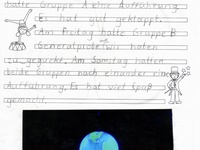 hatte Gruppe A eine Aufführung.
Es hat gut geklappt.
Am Freitag hatte Gruppe B
Generalprobe. Wir haben
zu geguckt. Am Samstag hatten
beide Gruppen nach einander eine
Aufführung. Es hat viel Spaß
gemacht.